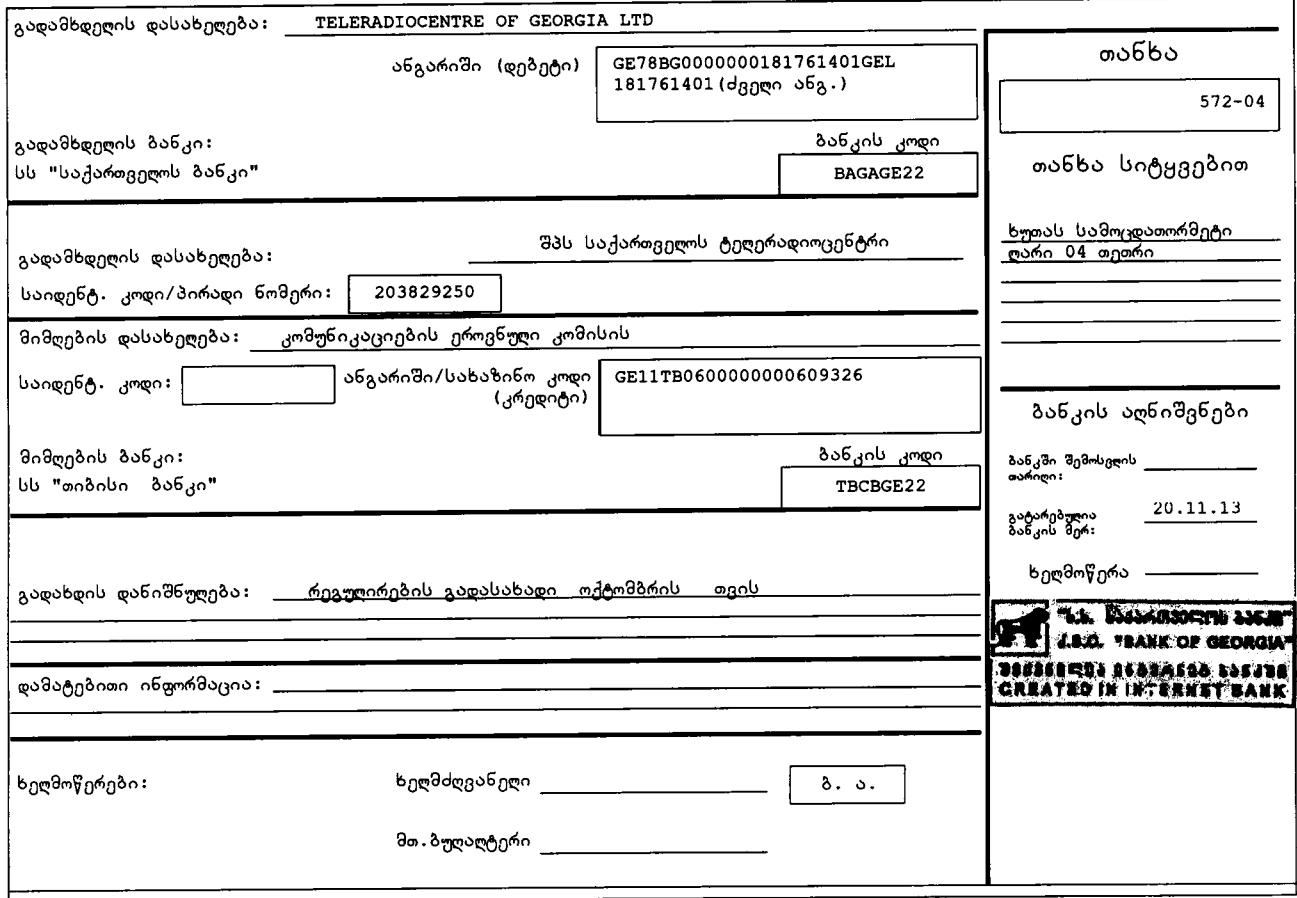 გადამხდელის დასახელება: TELERADIOCENTRE OF GEORGIA LTD
ანგარიში (დებეტი)
GE78BG0000000181761401GEL
181761401(ძველი ანგ.)
გადამხდელის ბანკი:
ბანკის კოდი
სს "საქართველოს ბანკი"
BAGAGE22
გადამხდელის დასახელება: შპს საქართველოს ტელერადიოცენტრი
საიდენტ. კოდი/პირადი ნომერი: 203829250
მიმღების დასახელება: კომუნიკაციების ეროვნული კომისის
საიდენტ. კოდი:
ანგარიში/სახაზინო კოდი
(კრედიტი)
GE11TB0600000000609326
მიმღების ბანკი:
ბანკის კოდი
სს "თიბისი ბანკი"
TBCBGE22
გადახდის დანიშნულება: რეგულირების გადასახადი ოქტომბრის თვის
დამატებითი ინფორმაცია:
ხელმოწერები:
ხელმძღვანელი
ბ. ა.
მთ.ბუღალტერი
თანხა
572-04
თანხა სიტყვებით
ხუთას სამოცდათორმეტი
ლარი 04 თეთრი
ბანკის აღნიშვნები
ბანკში შემოსვლის
თარიღი:
გატარებულია
ბანკის მერ:
20.11.13
ხელმოწერა
"ს.ს. საქართველოს ბანკი"
J.S.C. "BANK OF GEORGIA"
CREATED IN INTERNET BANK